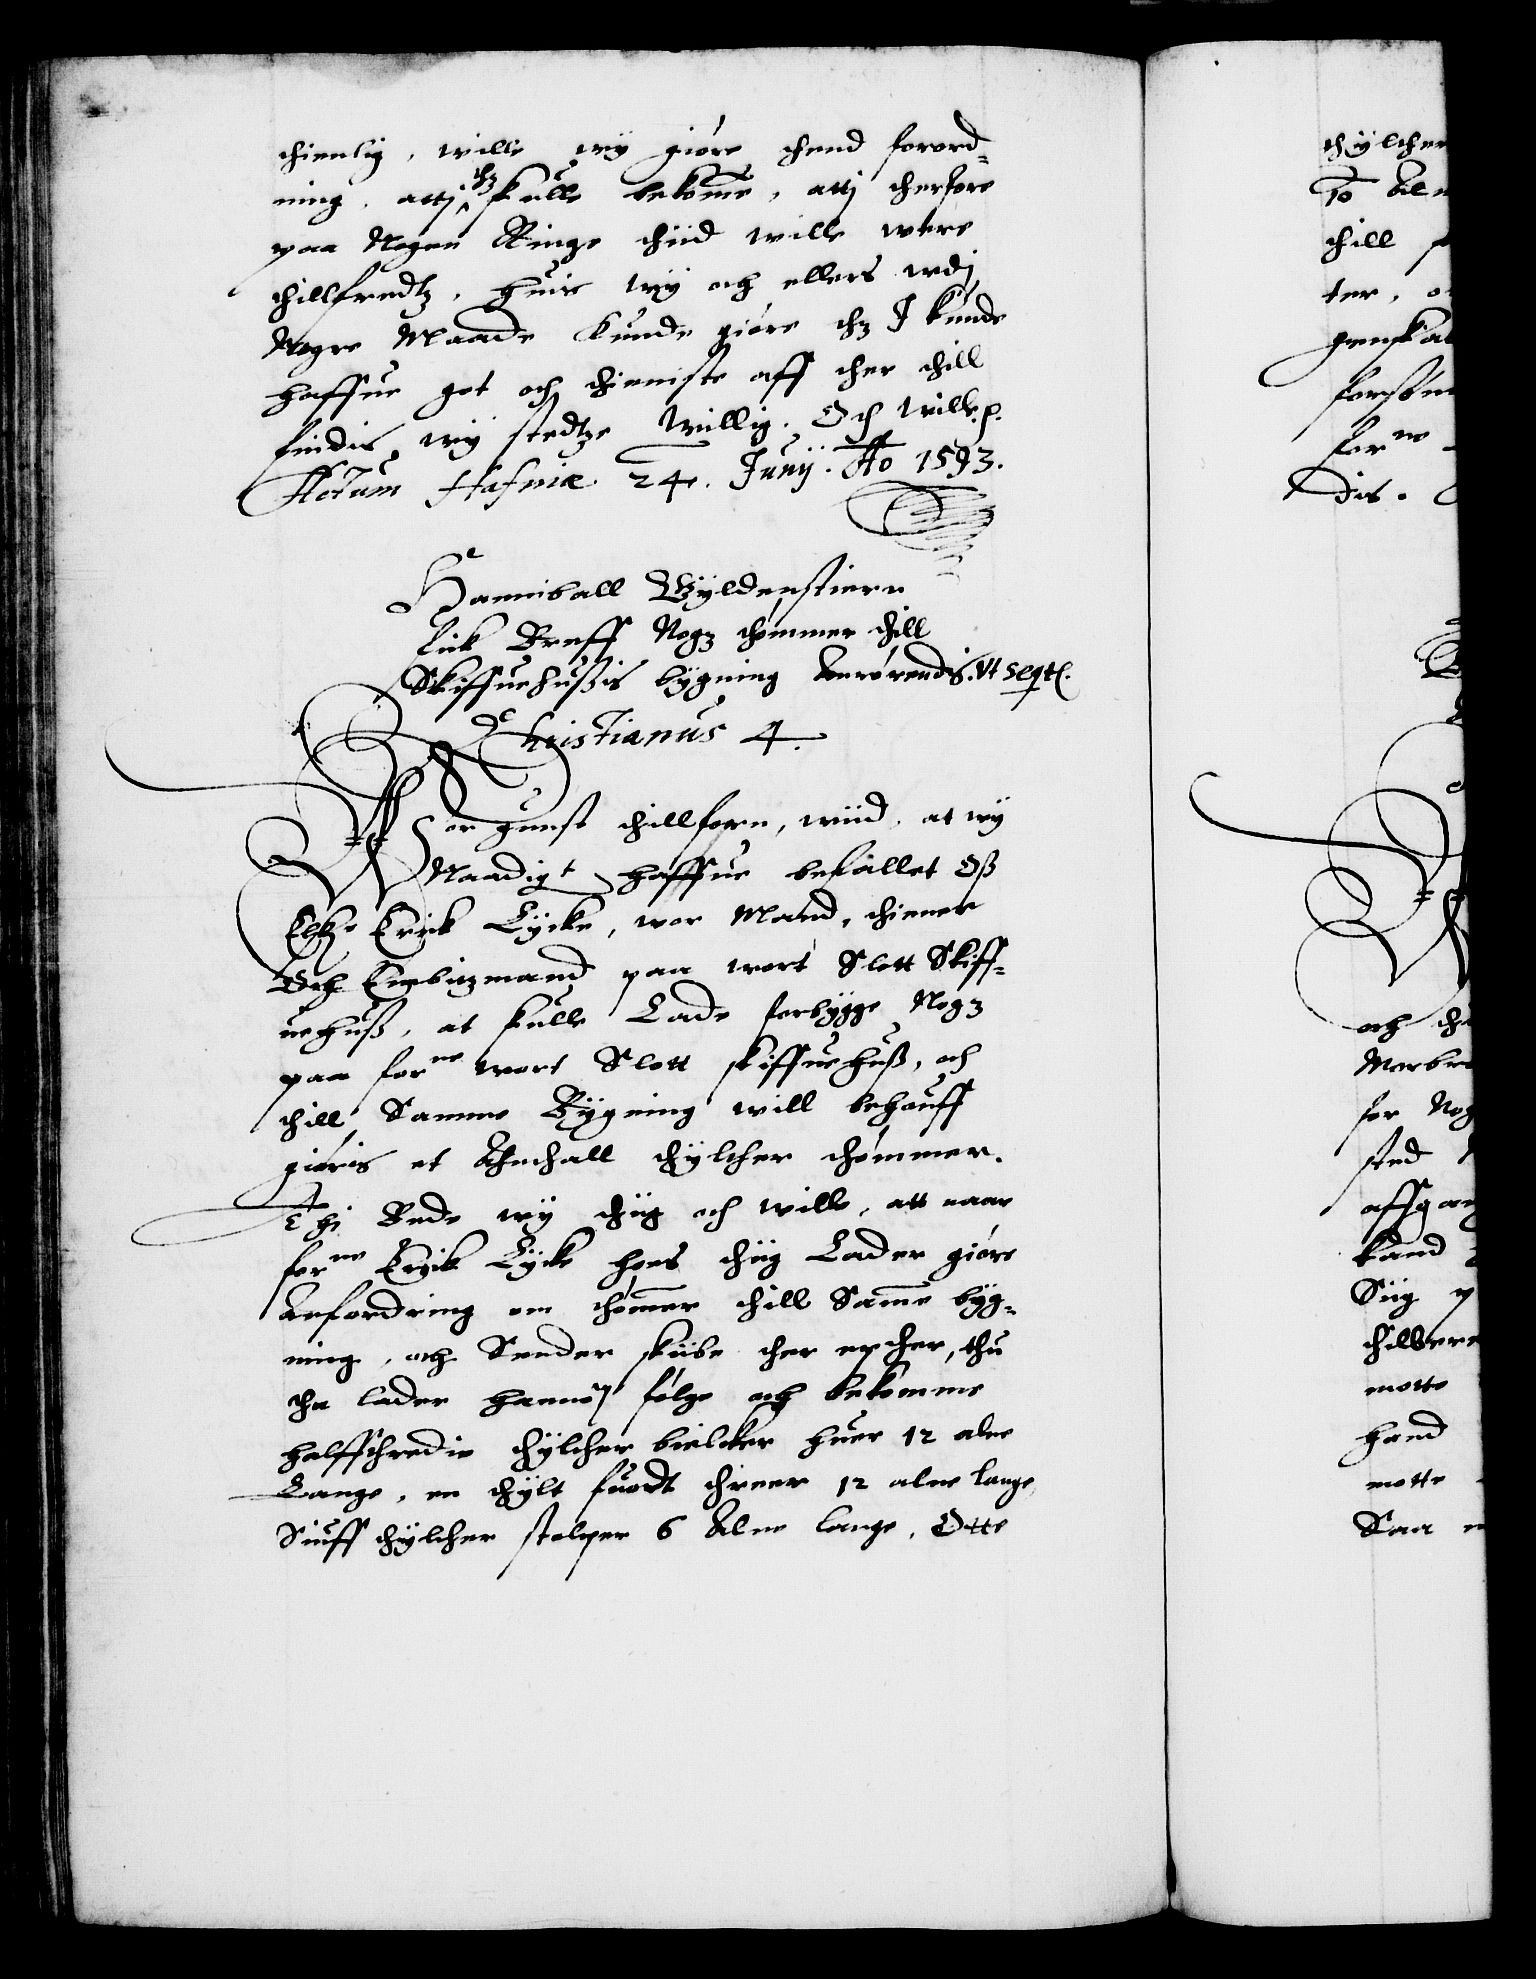 thienlig, wille wy giøre thend forord-
ning, attj thz skulle bekomme, attj therfore
paa Nogen Ringe thiid wille were
thillfredtz, huis wy och ellers wdj
Nogre Maade kunde giøre thz J kunde
haffue got och thieniste aff ther thill
findis wy stedtze willig. Och wille p.
Actum Hafniæ 24. Junij. Ao 1593.
Hanniball Gyldenstiern
fick Breff Nogz thømmer thill
Skiffuehußis bygning Anrørendis. Vt seqtr.
Christianus 4.
Wor gunst thillforn, wiid, at wy
Naadigt haffue befallet Oß
Elskl: Erick Lycke, wor Mand, thiener
Och Embitzmand paa wort Slott Skiff-
uehuß, at skulle Lade forbygge Nogz
paa forne wort Slott skiffuehuß, och
thill Samme Bygning will behouff
giøris et Anthall thylther thømmer.
Thj Bede wy thig och wille, att naar
forne Erick Lycke hoes thig Lader giøre
Anfordring om thømmer thill Samme byg-
ning, och Sender skiibe ther epther, thu
tha lader hannom følge och bekomme
halfftredie thylther bielcker huer 12 alne
Lange, en thylt fuort threer 12 alne lange,
Siuff thylther stolper 6 Alne lange, Otte
thylther
To Aln
thill
ter, o
genskab
forsøm
forne
dis.
och th
Morbro
for Nog
sted
affgang
kand
Siig p
thilbere
motte
hand
motte
Saa